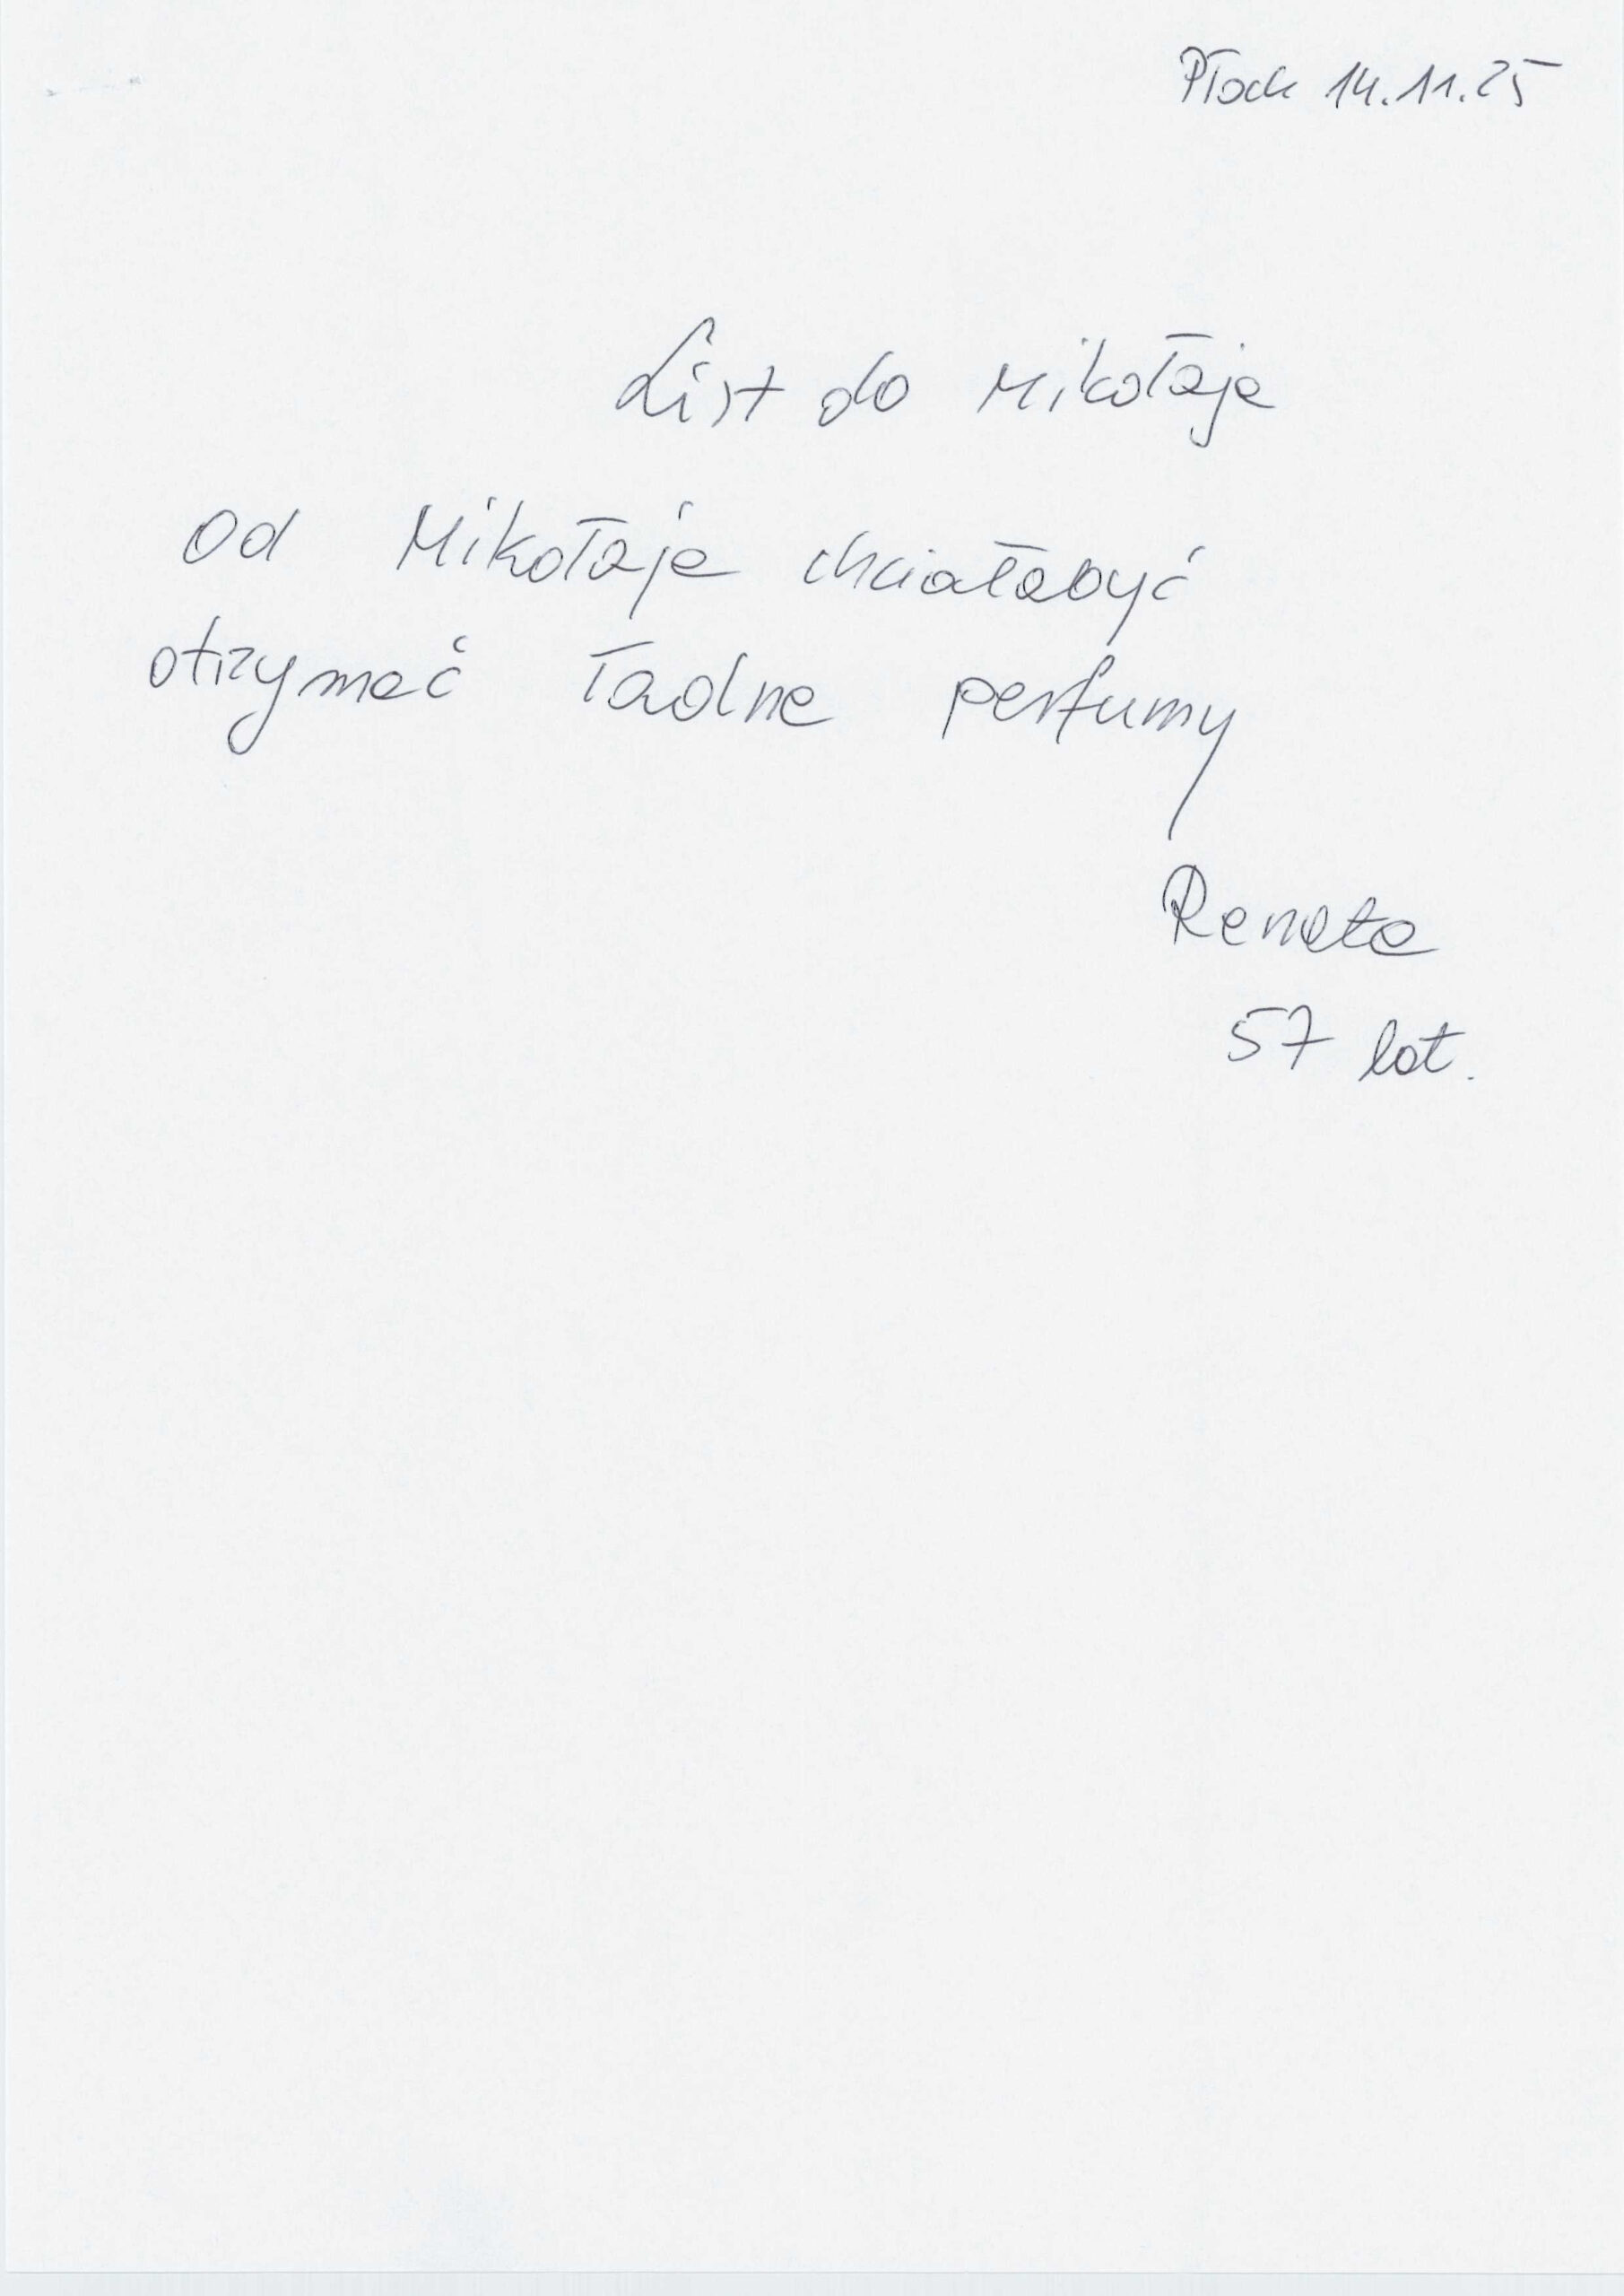 Płock 14.11.25
List do Mikołaja
Od Mikołaja chciałabyć
otrzymać ładne perfumy
Renata
57 lat.